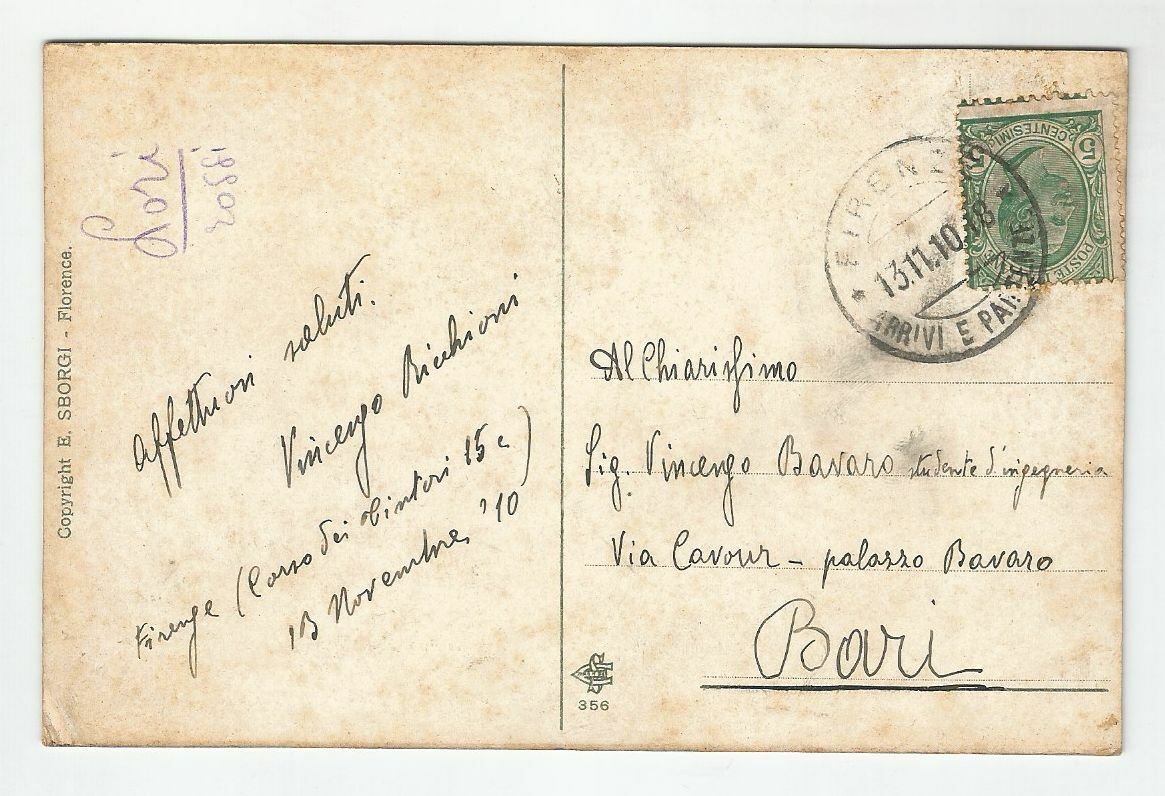 Copyright E. SBORGI - Florence.
Affettuosi saluti.
Vincenzo Ricchioni
Firenze (Corso dei Tintori 15
13 Novembre '10
FIRENZE
13.11.10.18
ARRIVI E PARTENZE
5 CENTESIMI 5
POSTE
Al Chiarissimo
Sig. Vincenzo Bavaro studente d'ingegneria
Via Cavour - palazzo Bavaro
Bari
356